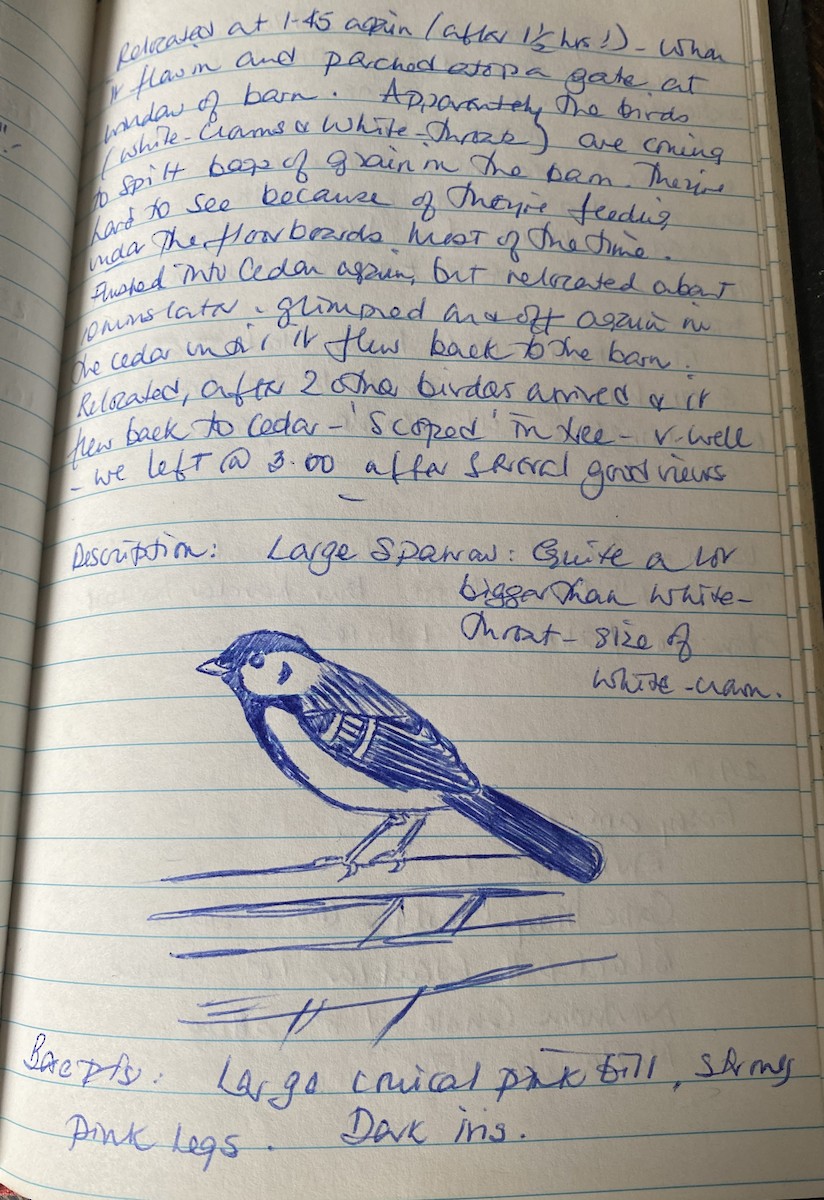 Relocated at 1-45 again (after 1½ hrs!) - when
it flew in and perched atop a gate at
window of barn. Apparently the birds
(White-Crowns & White-throat) are coming
to spilt bags of grain in the barn. They're
hard to see because of they're feeding
under the floorboards most of the time.
Flushed into Cedar again, but relocated about
10 mins later - glimpsed on & off again in
the cedar until it flew back to the barn.
Relocated, after 2 other birders arrived & it
flew back to Cedar - 'Scoped' in tree - v. well
- we left @ 3.00 after several good views
Description: Large Sparrow: Quite a lot
bigger than White-
throat - size of
White-crown.
Bare pts: Large conical pink bill, strong
pink legs. Dark iris.